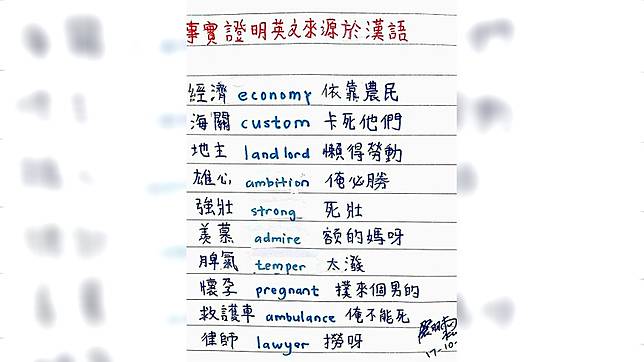 事實證明英文來源於漢語
經濟 economy 依靠農民
海關 custom 卡死他們
地主 landlord 懶得勞動
雄心 ambition 俺必勝
強壯 strong 死壯
羨慕 admire 额的媽呀
脾氣 temper 太潑
懷孕 pregnant 撲來個男的
救護車 ambulance 俺不能死
律師 lawyer 撈呀
17-10-